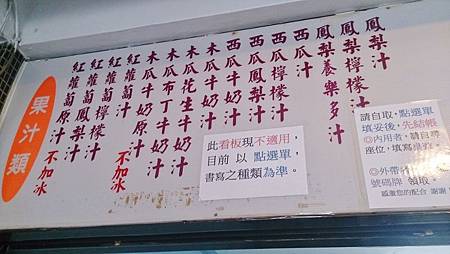 鳳梨汁
鳳梨檸檬汁
鳳梨養樂多汁
西瓜汁
西瓜檸檬汁
西瓜鳳梨汁
西瓜牛奶汁
木瓜牛奶汁
木瓜花生牛奶汁
木瓜布丁牛奶汁
木瓜牛奶原汁
紅蘿蔔汁 不加冰
紅蘿蔔檸檬汁
紅蘿蔔鳳梨汁
紅蘿蔔原汁 不加冰
果汁類
此看板現不適用，
目前 以 點選單，
書寫之種類為準。
請自取，點選單
填妥後，先結帳
◎內用者，請自尋
座位，填寫
◎外帶
號碼牌 領取。
感激您的配合 謝謝